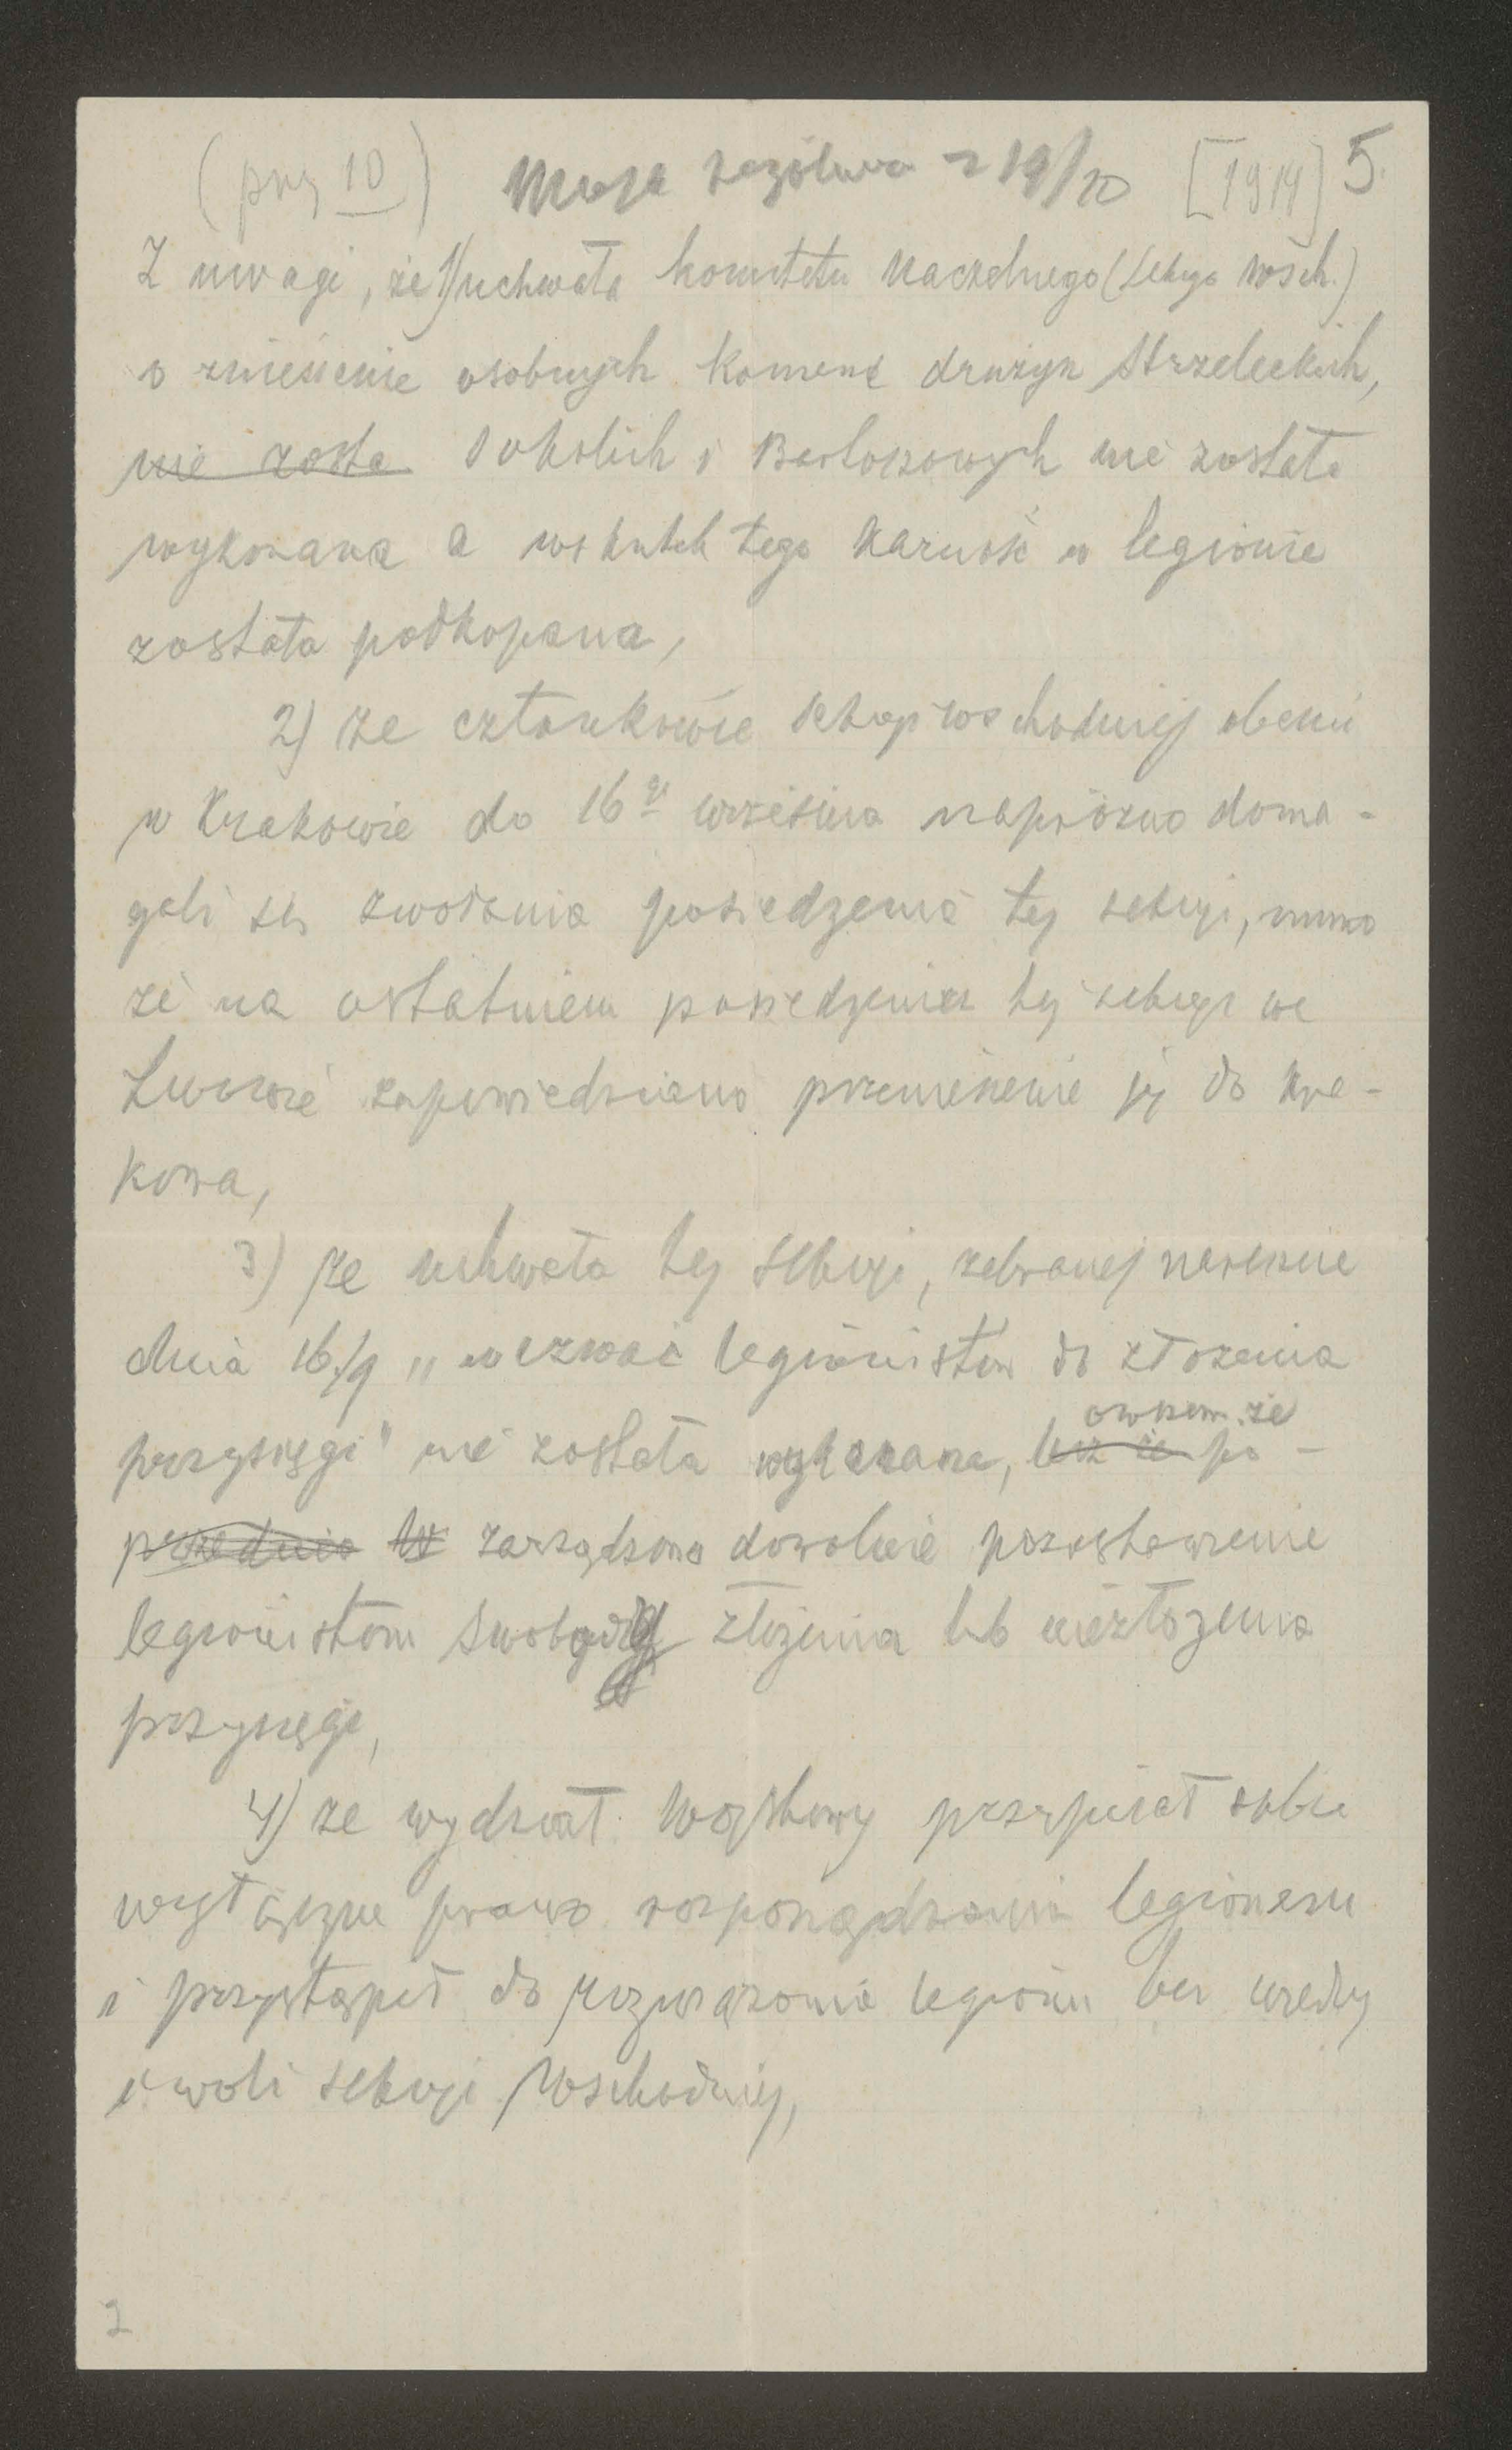 (przy 10) Moja rezolucya z 19/10 [1914] 5.
Z uwagi, że 1) uchwała komitetu Naczelnego (sekcya wsch.)
o zniesienie osobnych komend drużyn Strzeleckich,
nie zosta Sokolich i Bartoszowych nie została
wykonana a wskutek tego karność w legionie
została podkopana,
2) że członkowie sekcyi wschodniej obecni
w Krakowie do 16go września napróżno doma-
gali się zwołania posiedzenia tej sekcyi, mimo
że na ostatniem posiedzeniu tej sekcyi we
Lwowie zapowiedziano przeniesienie jej do Kra-
kowa,
3) że uchwała tej sekcyi, zebranej nareszcie
dnia 16./9 „wezwać legionistów do złożenia
owszem że
przysięgi" nie została wykonana, lecz że po-
przednio w zarządzono dowolnie pozostawienie
legionistom swobody złożenia lub niezłożenia
przysięgi,
4) że wydział Wojskowy przypisał sobie
wyłączne prawo rozporządzania legionem
i przystąpił do rozwiązania legionu bez wiedzy
i woli sekcyi Wschodniej,
2